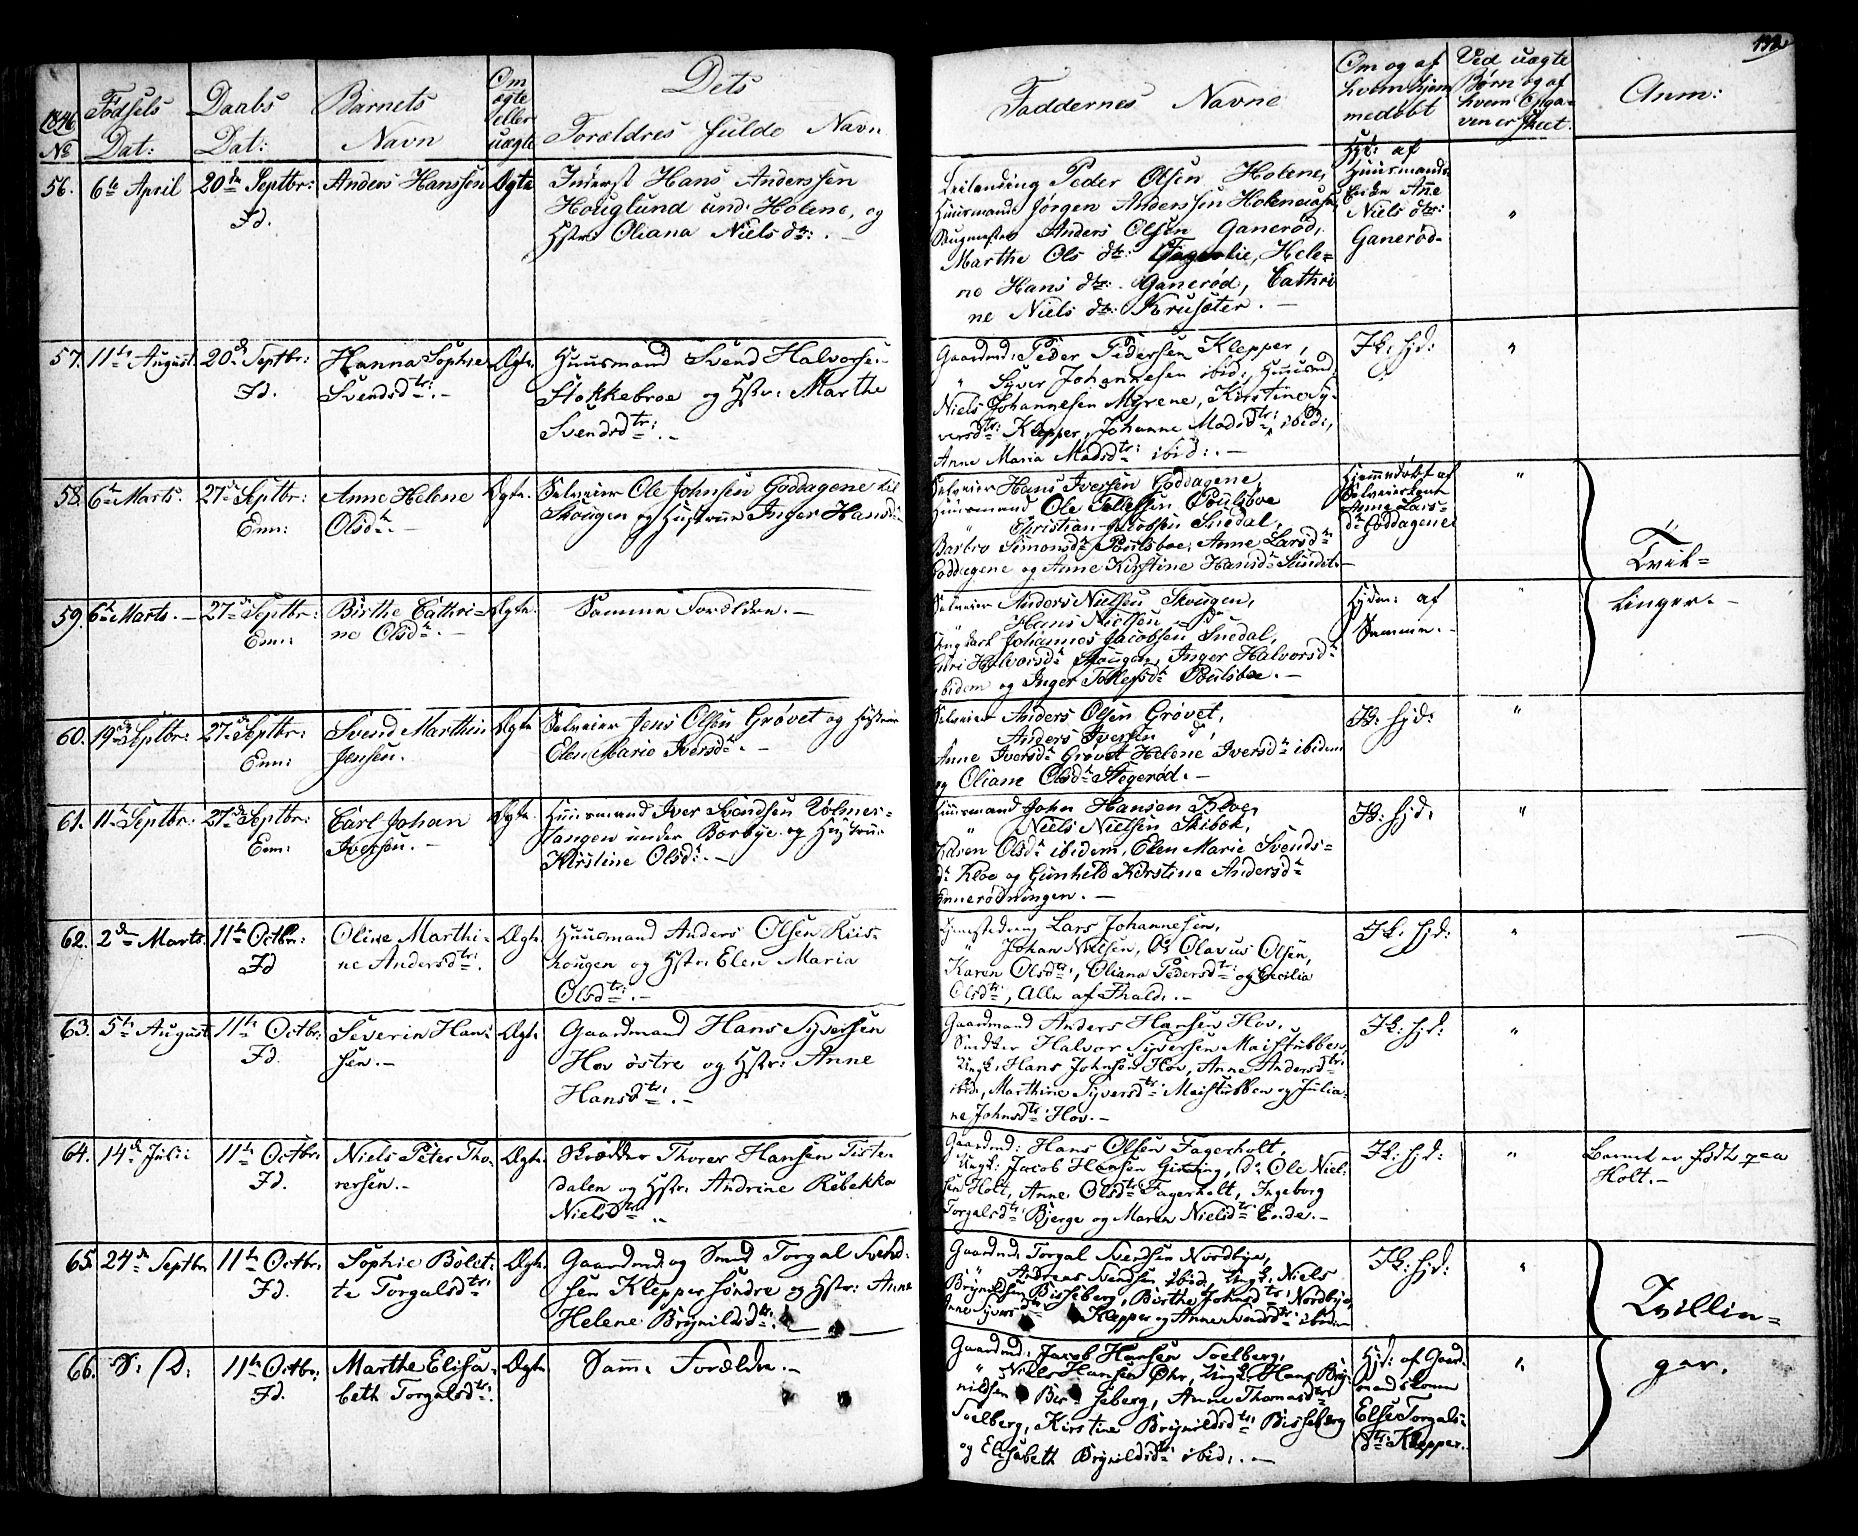 1846
No
Fødsels Dat:
Daabs Dat:
Barnets Navn
Om ægte eller uægte
Dets Forældres fulde Navn
Faddernes Navne
Om og af hvem hjemmedøbt
Ved uægte Børn og af hvem Opgaven er skeet.
Anm:
56. 6te April
20de Septbr: Id.
Anders Hanssen
Ægte
Inderst Hans Anderssen
Houglund und: Holene, og
Hstr: Oliana Nielsdtr: . —
Leilending Peder Olsen Holene,
Huusmand Jørgen Anderssen
Anders Olsen Ganerød,
Marthe Ols dtr: Hele=
ne Hans dtr: Ganerød, Cathri
ne Niels dtr: Korusæter. —
Hjd: af
Huusmands
Enke Ane
Niels dtr:
Ganerød.
"
57. 11te August
20de Septbr: Id.
Hanna Sophie
Svendsdtr: . —
Ægte
Huusmand Svend Halvorse..
Stokkebroe og Hstr: Marthe
Svendsdtr: . —
Gaardmd: Peder Pedersen Klepper,
" Syver Johannesen ibid:, Huusmd:
Niels Johannesen Myrene, Kirstine Sy-
versdtr: Klepper, Johanne Madsdtr:, ibid:,
Anne Maria Madsdtr: ibid: . —
Ik: hjd:
"
58. 6te Marts.
27de Septbr: Enn:
Anne Helene
Olsdtr. —
Ægte.
Selveier Ole Johnsen Goddagene til
Skougen og Hustrue Inger Hansdtr
Selveier Hans Iversen Goddagene,
Huusmand Ole Tollefsen Poulsboe
" Christian Jacobsen Snedal,
Barbro Simonsdtr Poulsboe, Anne Larsdtr
Goddagene og Anne Kirstine Hansdtr
Hjemmedøbt af
Selveierkone
Anne Lars-
dtr Goddagene
"
59. 6te Marts. —
27de Septbr: Enn:
Birthe Cathri-
ne Olsdtr. —
Ægte.
Samme Forældre. —
Selveier Anders Nielsen Skougen,
" Hans Nielsen do
Ungkarl Johannes Jacobsen Snedal,
Guri Halvorsdtr Skougen, Inger Halvorsdtr
ibidem og Inger Tollefsdtr Poulsboe. —
Hjdm: af
Samme. —
"
Tvil=
linger. —
60. 19de Septbr:
27de Septbr: Enn:
Svend Marthin
Jensen.
Ægte
Selveier Jens Olsen Grøvet og Hustrue
Elen Marie Iversdtr. —
Selveier Anders Olsen Grøvet,
Anders Iversen do,
Anne Iversdtr Grøvet Helene Iversdtr ibidem
og Oliane Olsdtr Stegerød. —
Ik: hjd:
"
61. 11te Septbr:
27de Septbr: Enn:
Carl Johan
Iversen. —
Ægte.
Huusmand Iver Svendsen Holmes-
tangen under Borbye og Hustrue
Kirstine Olsdtr. —
Huusmand John Hansen Kloe,
" Niels Nielsen Skibok,
Karen Olsdtr ibidem, Elen Marie Svends-
dtr Kloe og Gunhild Kirstine Andersdtr
Ennerødningen. —
Ik: hjd:
"
62. 2de Marts.
11te Octbr: Id
Oline Marthi-
ne Andersdtr: .
Ægte
Huusmand Anders Olsen Riis-
kougen og Hstr: Elen Maria
Olsdtr: . —
Lars Johannesen,
" Johan Nielsen, do Olavus Olsen,
Karen Olsdtr:, Oliana Pedersdtr: og Cecilia
Olsdtr:, Alle af Thald: . —
Ik: hjd:
"
63. 5te August
11te Octbr: Id.
Severin Han-
sen. —
Ægte
Gaardmand Hans Syversen
Hov østre og Hstr: Anne
Hansdtr: . —
Gaardmand Anders Hansen Hov,
Halvor Syversen Maistubben,
Ungk: Hans Johnsen Hov, Anne Andersdtr:
ibid:, Marthine Syversdtr: Maistubben og Julia-
ne Johnsdtr: Hov. —
Ik: hjd:
"
64. 14de Julii
11te Octbr: Id.
Niels Peter Tho-
rersen. —
Ægte
Skrædder Thorer Hansen Tiste-
dalen og Hstr: Andrine Rebekka
Nielsdtr: .
Gaardmd: Hans Olsen Fagerholt,
Ungk: Jacob Hansen Gieting, do Ole Niel-
sen Holt, Anne Olsdtr: Fagerholt, Ingeborg
Torgalsdtr: Bjerge og Maren Nielsdtr: Ende. —
Ik: hjd:
"
Barnet er født paa
Holt. —
65. 24de Septbr
11te Octbr: Id.
Sophie Bolet-
te Torgalsdtr:
Ægte
Gaardmd: og Smed Torgal Svend-
sen Klepper søndre og Hstr: Anne
Helene Brynildsdtr: . —
Gaardmd: Torgal Svendsen Nordbye,
" Andreas Svendsen ibid:, Ungk: Niels
Brynildsen Bisseberg, Birthe Johnsdtr: Nordbye,
Anne Syversdtr: Klepper og Anne Svendsdtr: ibid: —
Ik: hjd:
"
66. S: D:
11te Octbr: Id.
Marthe Elisa-
beth Torgalsdtr: .
Ægte
Samme Forældre. —
Gaardmd: Jacob Hansen Solberg,
" Niels Hansen Øhr, Ungk: Hans Bry-
nildsen Bisseberg, Anne Thomasdtr:
Solberg, Kirstine Brynildsdtr: Bisseberg
og Elisabeth Brynildsdtr: ibid: . —
Hjd: af Gaard-
mandskone
Else Torgals-
dtr: Klepper.
"
Tvillin=
ger.